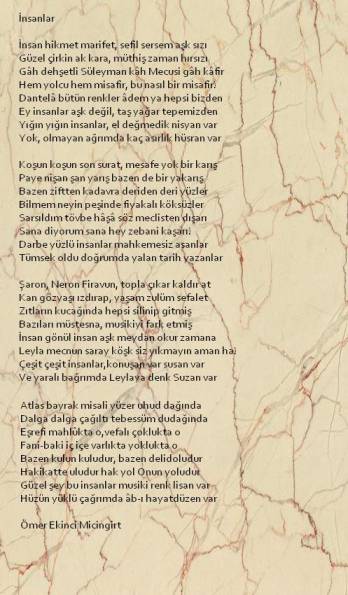 İnsanlar
İnsan hikmet marifet, sefil sersem aşk sızı
Güzel çirkin ak kara, müthiş zaman hırsızı
Gâh dehşetli Süleyman kâh Mecusi gâh kâfir
Hem yolcu hem misafir, bu nasıl bir misafir.
Dantelâ bütün renkler âdem ya hepsi bizden
Ey insanlar aşk değil, taş yağar tepemizden
Yığın yığın insanlar, el değmedik nisyan var
Yok, olmayan ağrımda kaç asırlık hüsran var
Koşun koşun son surat, mesafe yok bir karış
Paye nişan şan yarış bazen de bir yakarış
Bazen ziftten kadavra deriden deri yüzler
Bilmem neyin peşinde fiyakalı köksüzler
Sarsıldım tövbe hâşâ söz meclisten dışarı
Sana diyorum sana hey zebani kaşarı!
Darbe yüzlü insanlar mahkemesiz aşanlar
Tümsek oldu doğrumda yalan tarih yazanlar
Şaron, Neron Firavun, topla çıkar kaldır at
Kan gözyaşı ızdırap, yaşam zulüm sefalet
Zıtların kucağında hepsi silinip gitmiş
Bazıları müstesna, musikiyi fark etmiş
İnsan gönül insan aşk meydan okur zamana
Leyla mecnun saray köşk siz yıkmayın aman ha!
Çeşit çeşit insanlar,konuşan var susan var
Ve yaralı bağrımda Leylaya denk Suzan var
Atlas bayrak misali yüzer uhud dağında
Dalga dalga çağıltı tebessüm dudağında
Eşrefi mahlûkta o,vefalı çoklukta o
Fani-baki iç içe varlıkta yoklukta o
Bazen kulun kuludur, bazen delidoludur
Hakikatte uludur hak yol Onun yoludur
Güzel şey bu insanlar musiki renk lisan var
Hüzün yüklü çağrımda âb-ı hayatdüzen var
Ömer Ekinci Micingirt